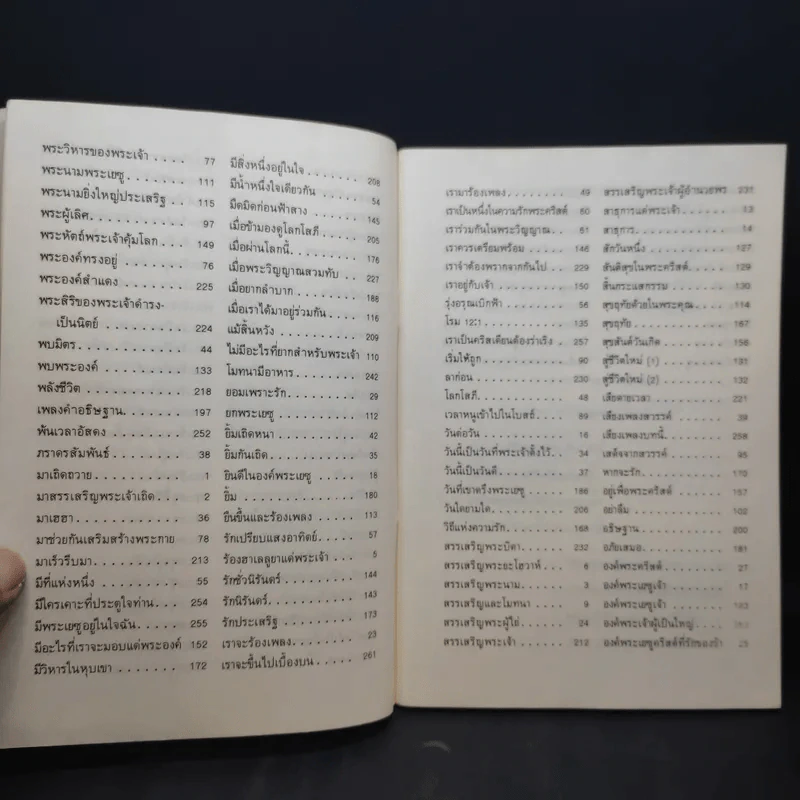 พระวิหารของพระเจ้า .... 77
พระนามพระเยซู ....... 111
พระนามยิ่งใหญ่ประเสริฐ .. 115
พระผู้เลิศ ............ 97
พระหัตถ์พระเจ้าคุ้มโลก .. 149
พระองค์ทรงอยู่ ........ 76
พระองค์สำแดง ........ 225
พระสิริของพระเจ้าดำรง-
เป็นนิตย์ ......... 224
พบมิตร ............. 44
พบพระองค์ .......... 133
พลังชีวิต ............ 218
เพลงคำอธิษฐาน ....... 197
พันเวลาอัสดง ......... 252
ภราดรสัมพันธ์ ........ 38
มาเถิดถวาย .......... 1
มาสรรเสริญพระเจ้าเถิด .. 2
มาเฮฮา ............. 36
มาช่วยกันเสริมสร้างพระกาย 78
มาเร็วรีบมา .......... 213
มีที่แห่งหนึ่ง .......... 55
มีใครเคาะที่ประตูใจท่าน .. 254
มีพระเยซูอยู่ในใจฉัน .... 255
มีอะไรที่เราจะมอบแด่พระองค์ 152
มีวิหารในหุบเขา ....... 172
มีสิ่งหนึ่งอยู่ในใจ ....... 208
มีน้ำหนึ่งใจเดียวกัน ..... 54
มืดมิดก่อนฟ้าสาง ...... 145
เมื่อข้ามองดูโลกโสภี .... 205
เมื่อผ่านโลกนี้ ......... 176
เมื่อพระวิญญาณสวมทับ .. 227
เมื่อยากลำบาก ....... 188
เมื่อเราได้มาอยู่ร่วมกัน .. 61
แม้สิ้นหวัง ........... 209
ไม่มีอะไรที่ยากสำหรับพระเจ้า 110
โมทนามีอาหาร ....... 242
ยอมเพราะรัก ........ 29
ยกพระเยซู .......... 112
ยิ้มเถิดหนา .......... 42
ยิ้มกันเถิด ........... 35
ยินดีในองค์พระเยซู .... 18
ยิ้ม ................ 180
ยืนขึ้นและร้องเพลง .... 113
รักเปรียบแสงอาทิตย์ ... 57
ร้องฮาเลลูยาแด่พระเจ้า .. 5
รักชั่วนิรันดร์ ......... 144
รักนิรันดร์ ........... 143
รักประเสริฐ ......... 173
เราจะร้องเพลง ....... 23
เราจะขึ้นไปเบื้องบน .... 261
เรามาร้องเพลง ....... 49
เราเป็นหนึ่งในความรักพระคริสต์ 60
เราร่วมกันในพระวิญญาณ .. 51
เราควรเตรียมพร้อม .... 146
เราจำต้องพรากจากกันไป .. 229
เราอยู่กับเจ้า ......... 150
รุ่งอรุณเบิกฟ้า ........ 51
โรม 12:1 ........... 135
เราเป็นคริสเตียนต้องร่าเริง 257
เริ่มให้ถูก ............ 90
ลาก่อน ............. 230
โลกโสภี ............ 48
เวลาหนูเข้าไปในโบสถ์ ... 89
วันต่อวัน ............ 16
วันนี้เป็นวันที่พระเจ้าตั้งไว้ .. 34
วันนี้เป็นวันดี ......... 37
วันที่เขาตรึงพระเยซู .... 186
วันใดยามใด ......... 206
วิธีแห่งความรัก ....... 187
สรรเสริญพระบิดา ..... 232
สรรเสริญพระยะโฮวาห์ .. 6
สรรเสริญพระนาม ..... 3
สรรเสริญและโมทนา ... 9
สรรเสริญพระผู้ไถ่ ..... 24
สรรเสริญพระเจ้า ...... 212
สรรเสริญพระเจ้าผู้อำนวยพร 231
สาธุการแด่พระเจ้า ..... 13
สาธุการ ............ 14
สักวันหนึ่ง ........... 127
สันติสุขในพระคริสต์ .... 129
สิ้นกระแสกรรม ....... 130
สุขฤทัยด้วยในพระคุณ ... 114
สุขฤทัย ............. 167
สุขสันต์วันเกิด ........ 166
สู่ชีวิตใหม่ (1) ....... 131
สู่ชีวิตใหม่ (2) ....... 132
เสียดายเวลา ........ 221
เสียงเพลงสวรรค์ ..... 39
เสียงเพลงบทนี้ ....... 258
เสด็จจากสวรรค์ ...... 68
หากจะรัก ........... 170
อยู่เพื่อพระคริสต์ ...... 157
อย่าลืม ............. 102
อธิษฐาน ............ 200
อภัยเสมอ ........... 181
องค์พระคริสต์
องค์พระเยซูเจ้า ....... 17
องค์พระเยซูเจ้า
องค์พระเจ้าผู้เป็นใหญ่
องค์พระเยซูคริสต์ที่รักของข้า 25